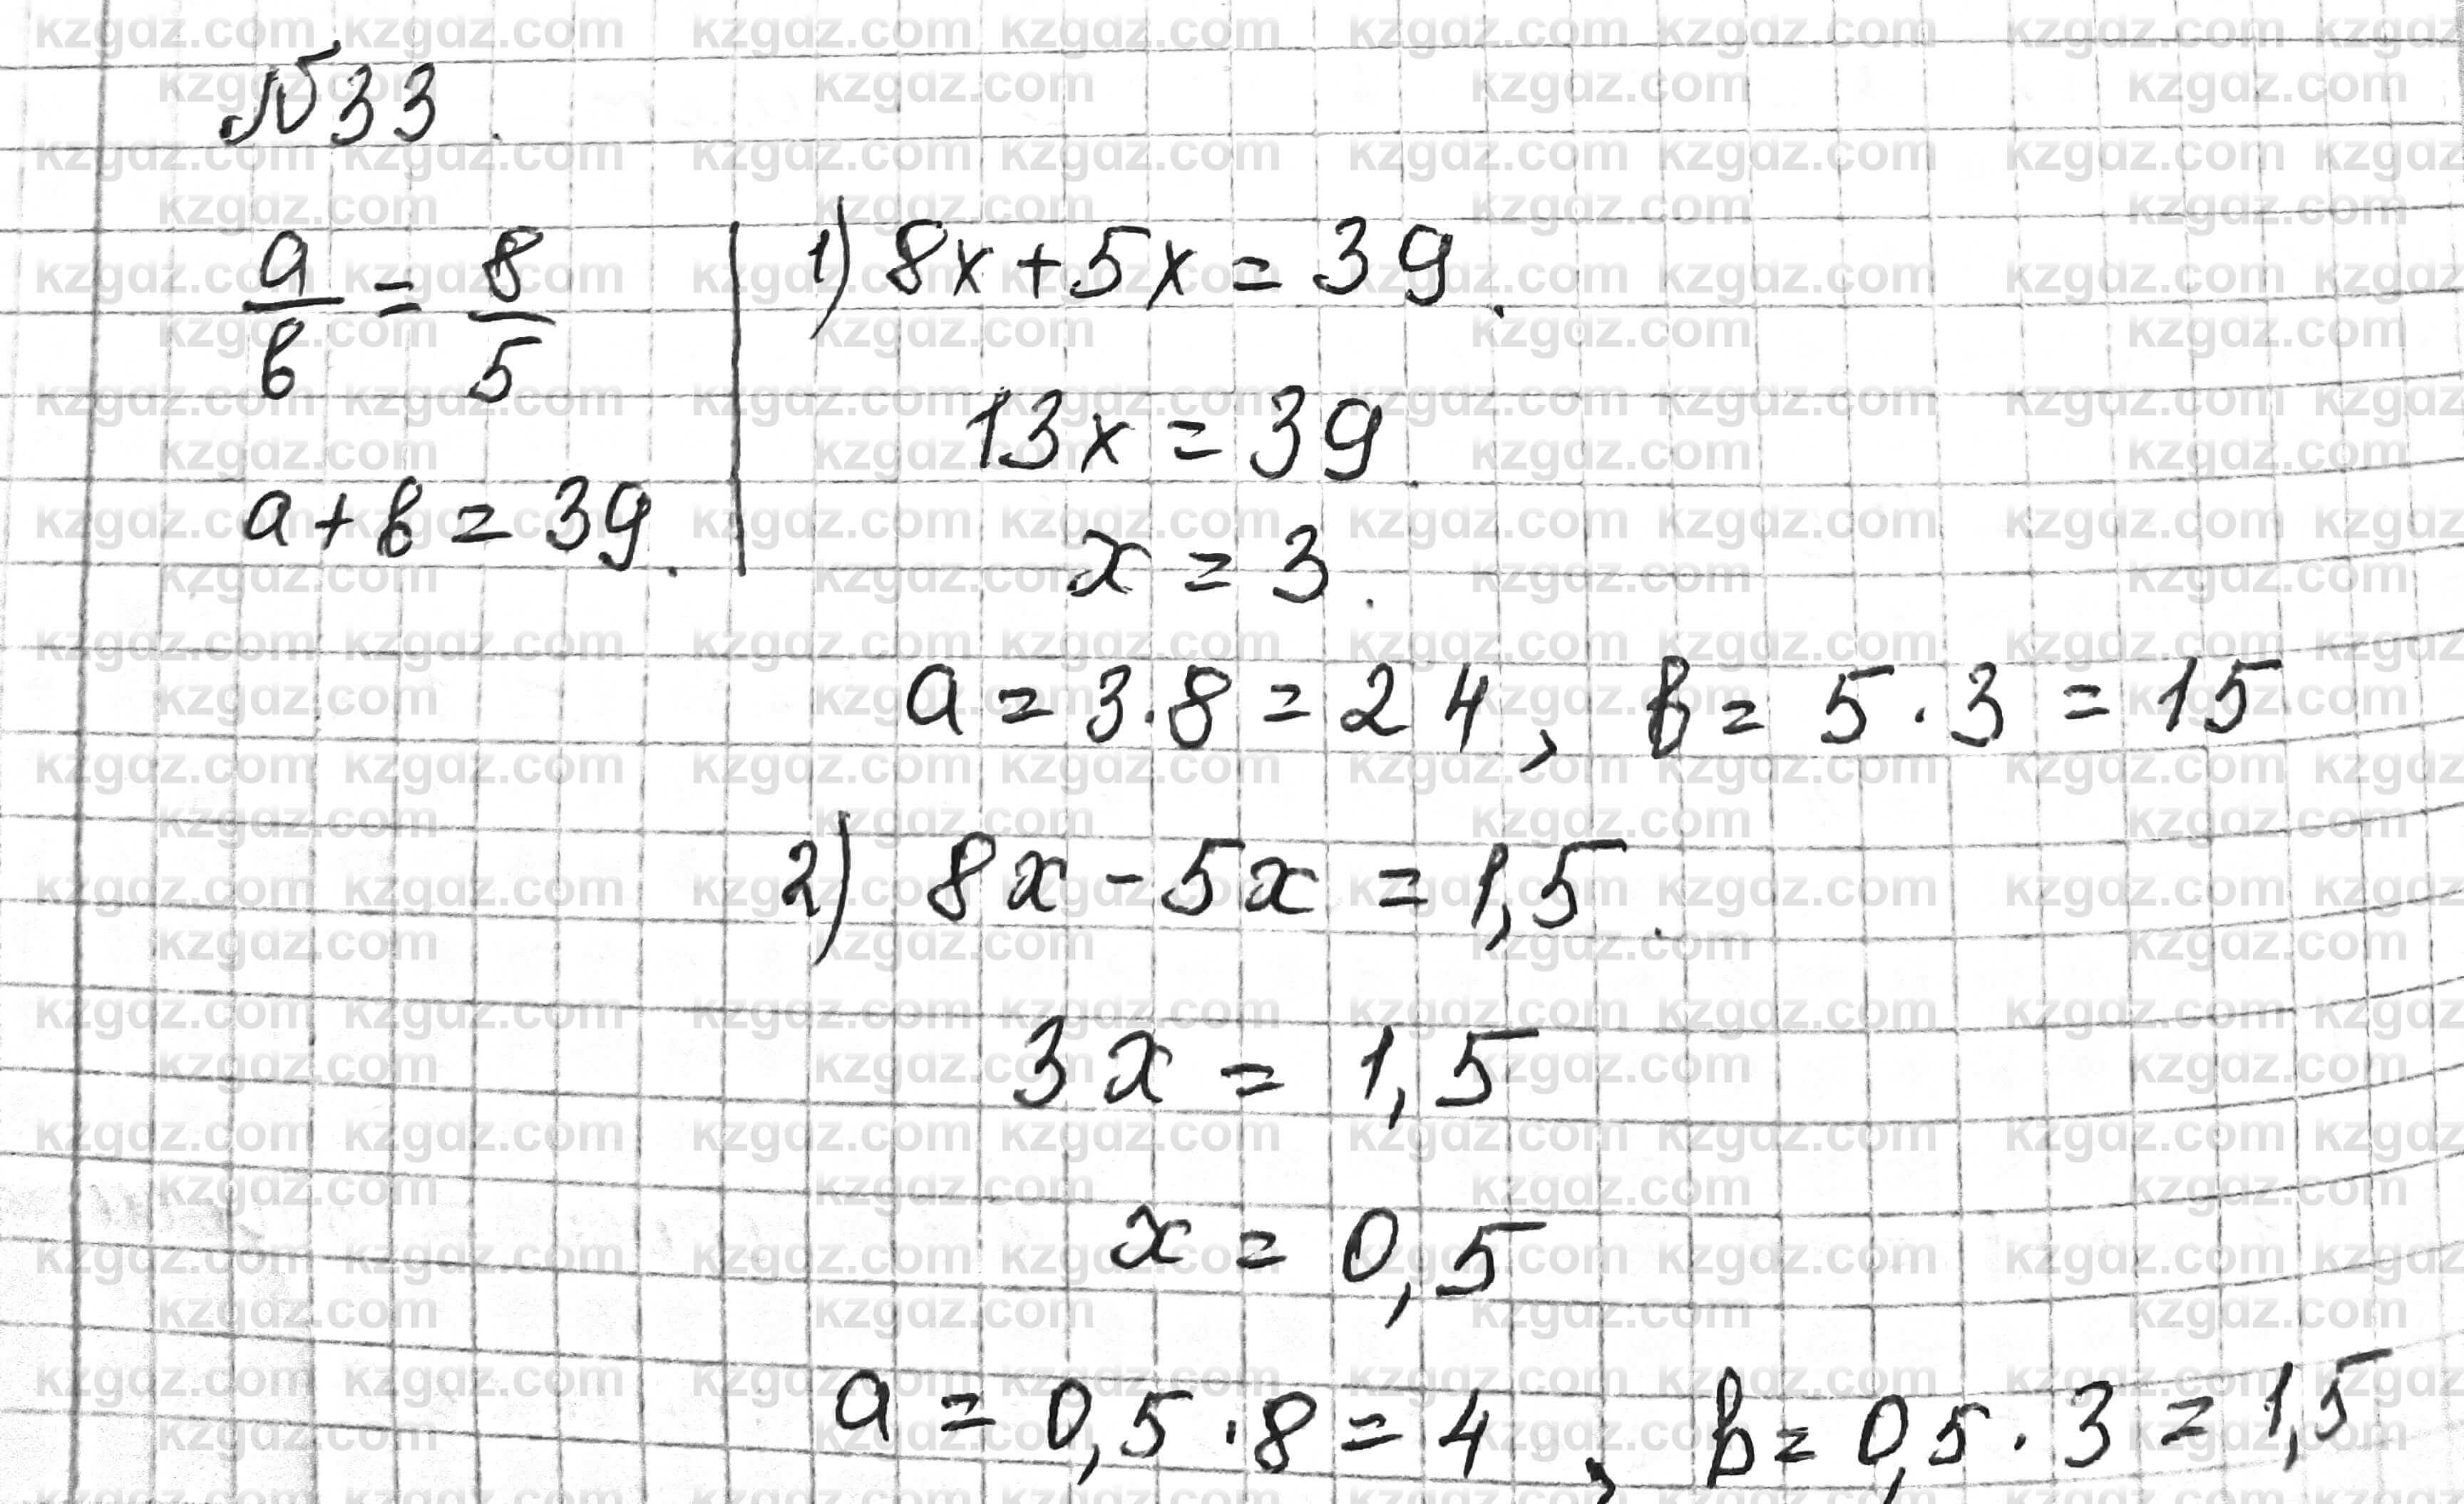 №33.
a/b = 8/5
a + b = 39.
1) 8x + 5x = 39.
13x = 39.
x = 3.
a = 3·8 = 24, b = 5·3 = 15
2) 8x - 5x = 1,5.
3x = 1,5
x = 0,5
a = 0,5·8 = 4, b = 0,5·3 = 1,5
kzgdz.com